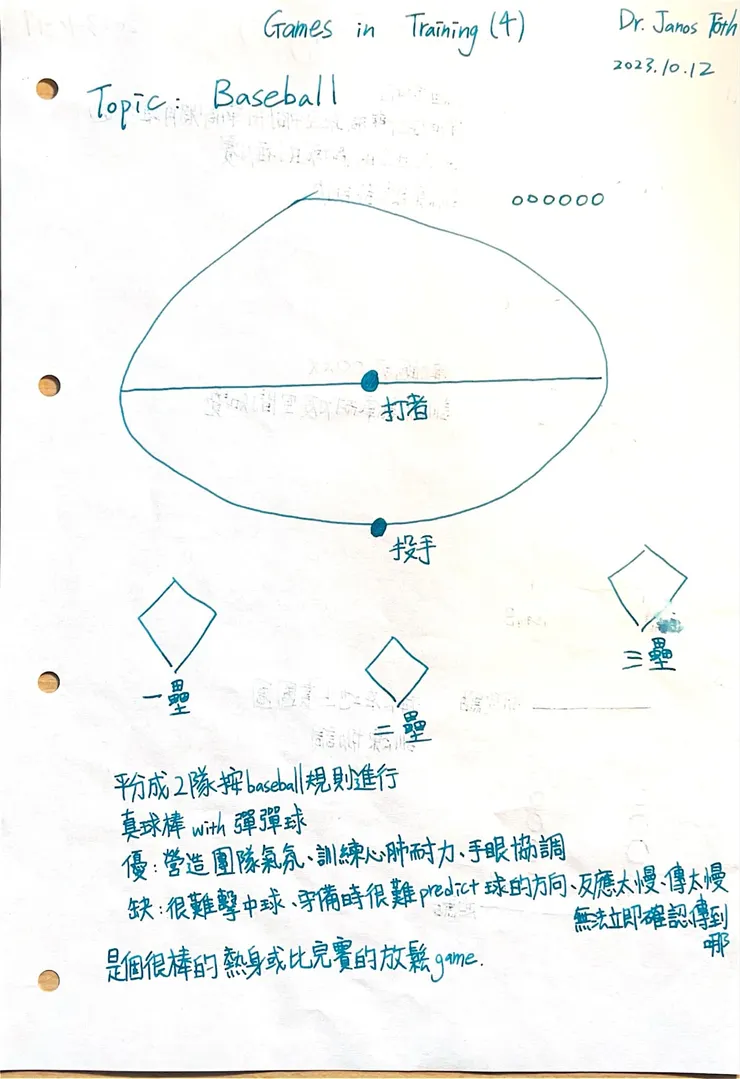 Games in Training (4)
Dr. Janos Tóth
2023.10.12
Topic: Baseball
打者
投手
一壘
二壘
三壘
平分成2隊按baseball規則進行
真球棒 with 彈彈球
優:營造團隊氣氛、訓練心肺耐力、手眼協調
缺:很難擊中球、守備時很難predict球的方向、反應太慢、傳太慢
無法立即確認傳到
哪
是個很棒的熱身或比完賽的放鬆game.